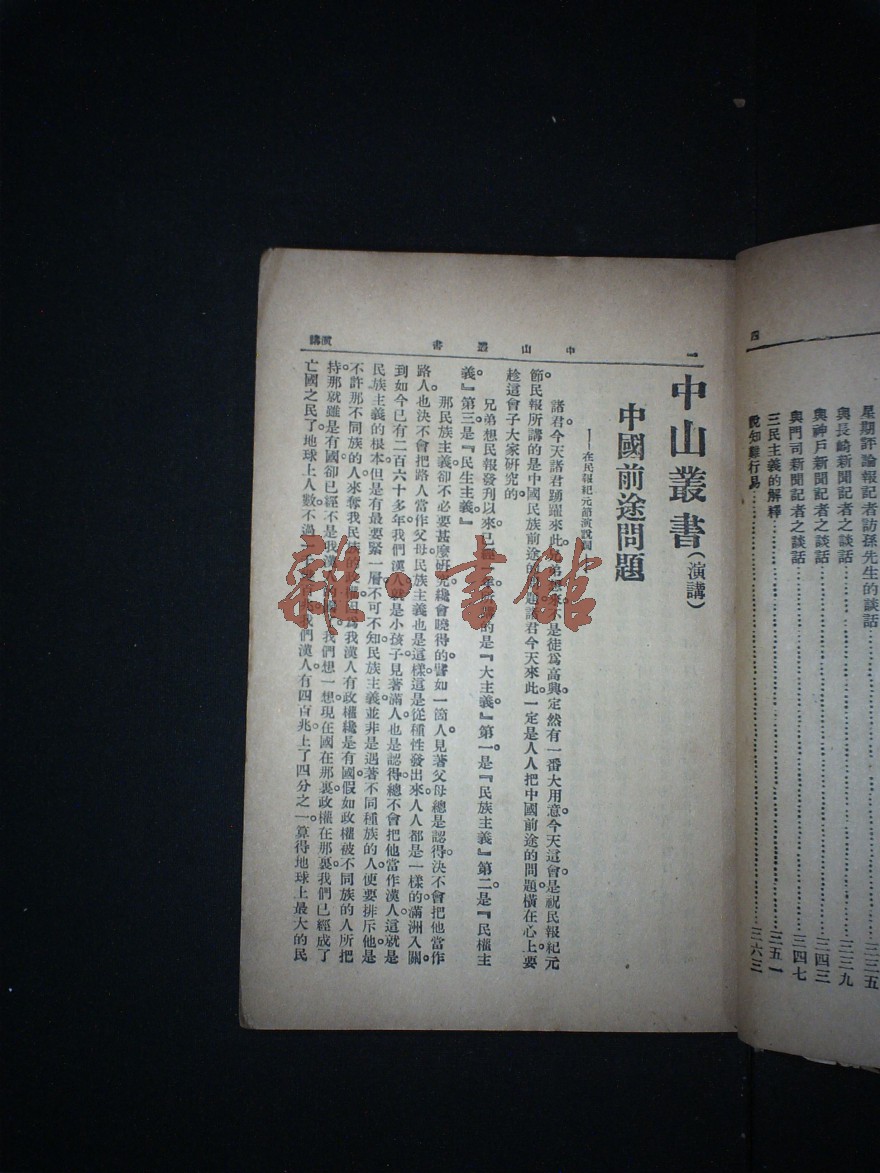 四
星期評論報記者訪孫先生的談話……三三五
與長崎新聞記者之談話……三三九
與神戶新聞記者之談話……三四三
與門司新聞記者之談話……三四七
三民主義的解釋……三五一
說知難行易……三六三
二
中山叢書
演講
中山叢書(演講)
中國前途問題
——在民報紀元節演說詞
諸君今天諸君踴躍來此兄弟想來不是徒爲高興。定然有一番大用意今天這會是祝民報紀元
節民報所講的是中國民族前途的問題諸君今天來此。一定是人人把中國前途的問題橫在心上要
趁這會子大家研究的。
兄弟想民報發刊以來。已經一年所講的是『大主義』第一是『民族主義』第二是『民權主
義』第三是『民生主義』
那民族主義。卻不必要甚麼研究纔會曉得的。譬如一箇人見著父母總是認得。決不會把他當作
路人也決不會把路人當作父母民族主義也是這樣。這是從種性發出來。人人都是一樣的。滿洲入關。
到如今已有二百六十多年我們漢人就是小孩子見著滿人也是認得總不會把他當作漢人。這就是
民族主義的根本。但是有最要緊一層不可不知民族主義並非是遇著不同種族的人。便要排斥他是
不許那不同族的人來奪我民族的政權因爲我漢人有政權纔是有國假如政權被不同族的人所把
持那就雖是有國卻已經不是我漢人的國我們想一想現在國在那裏。政權在那裏我們已經成了
亡國之民了地球上人數不過一千幾百兆我們漢人有四百兆上了四分之一。算得地球上最大的民
雜·書館